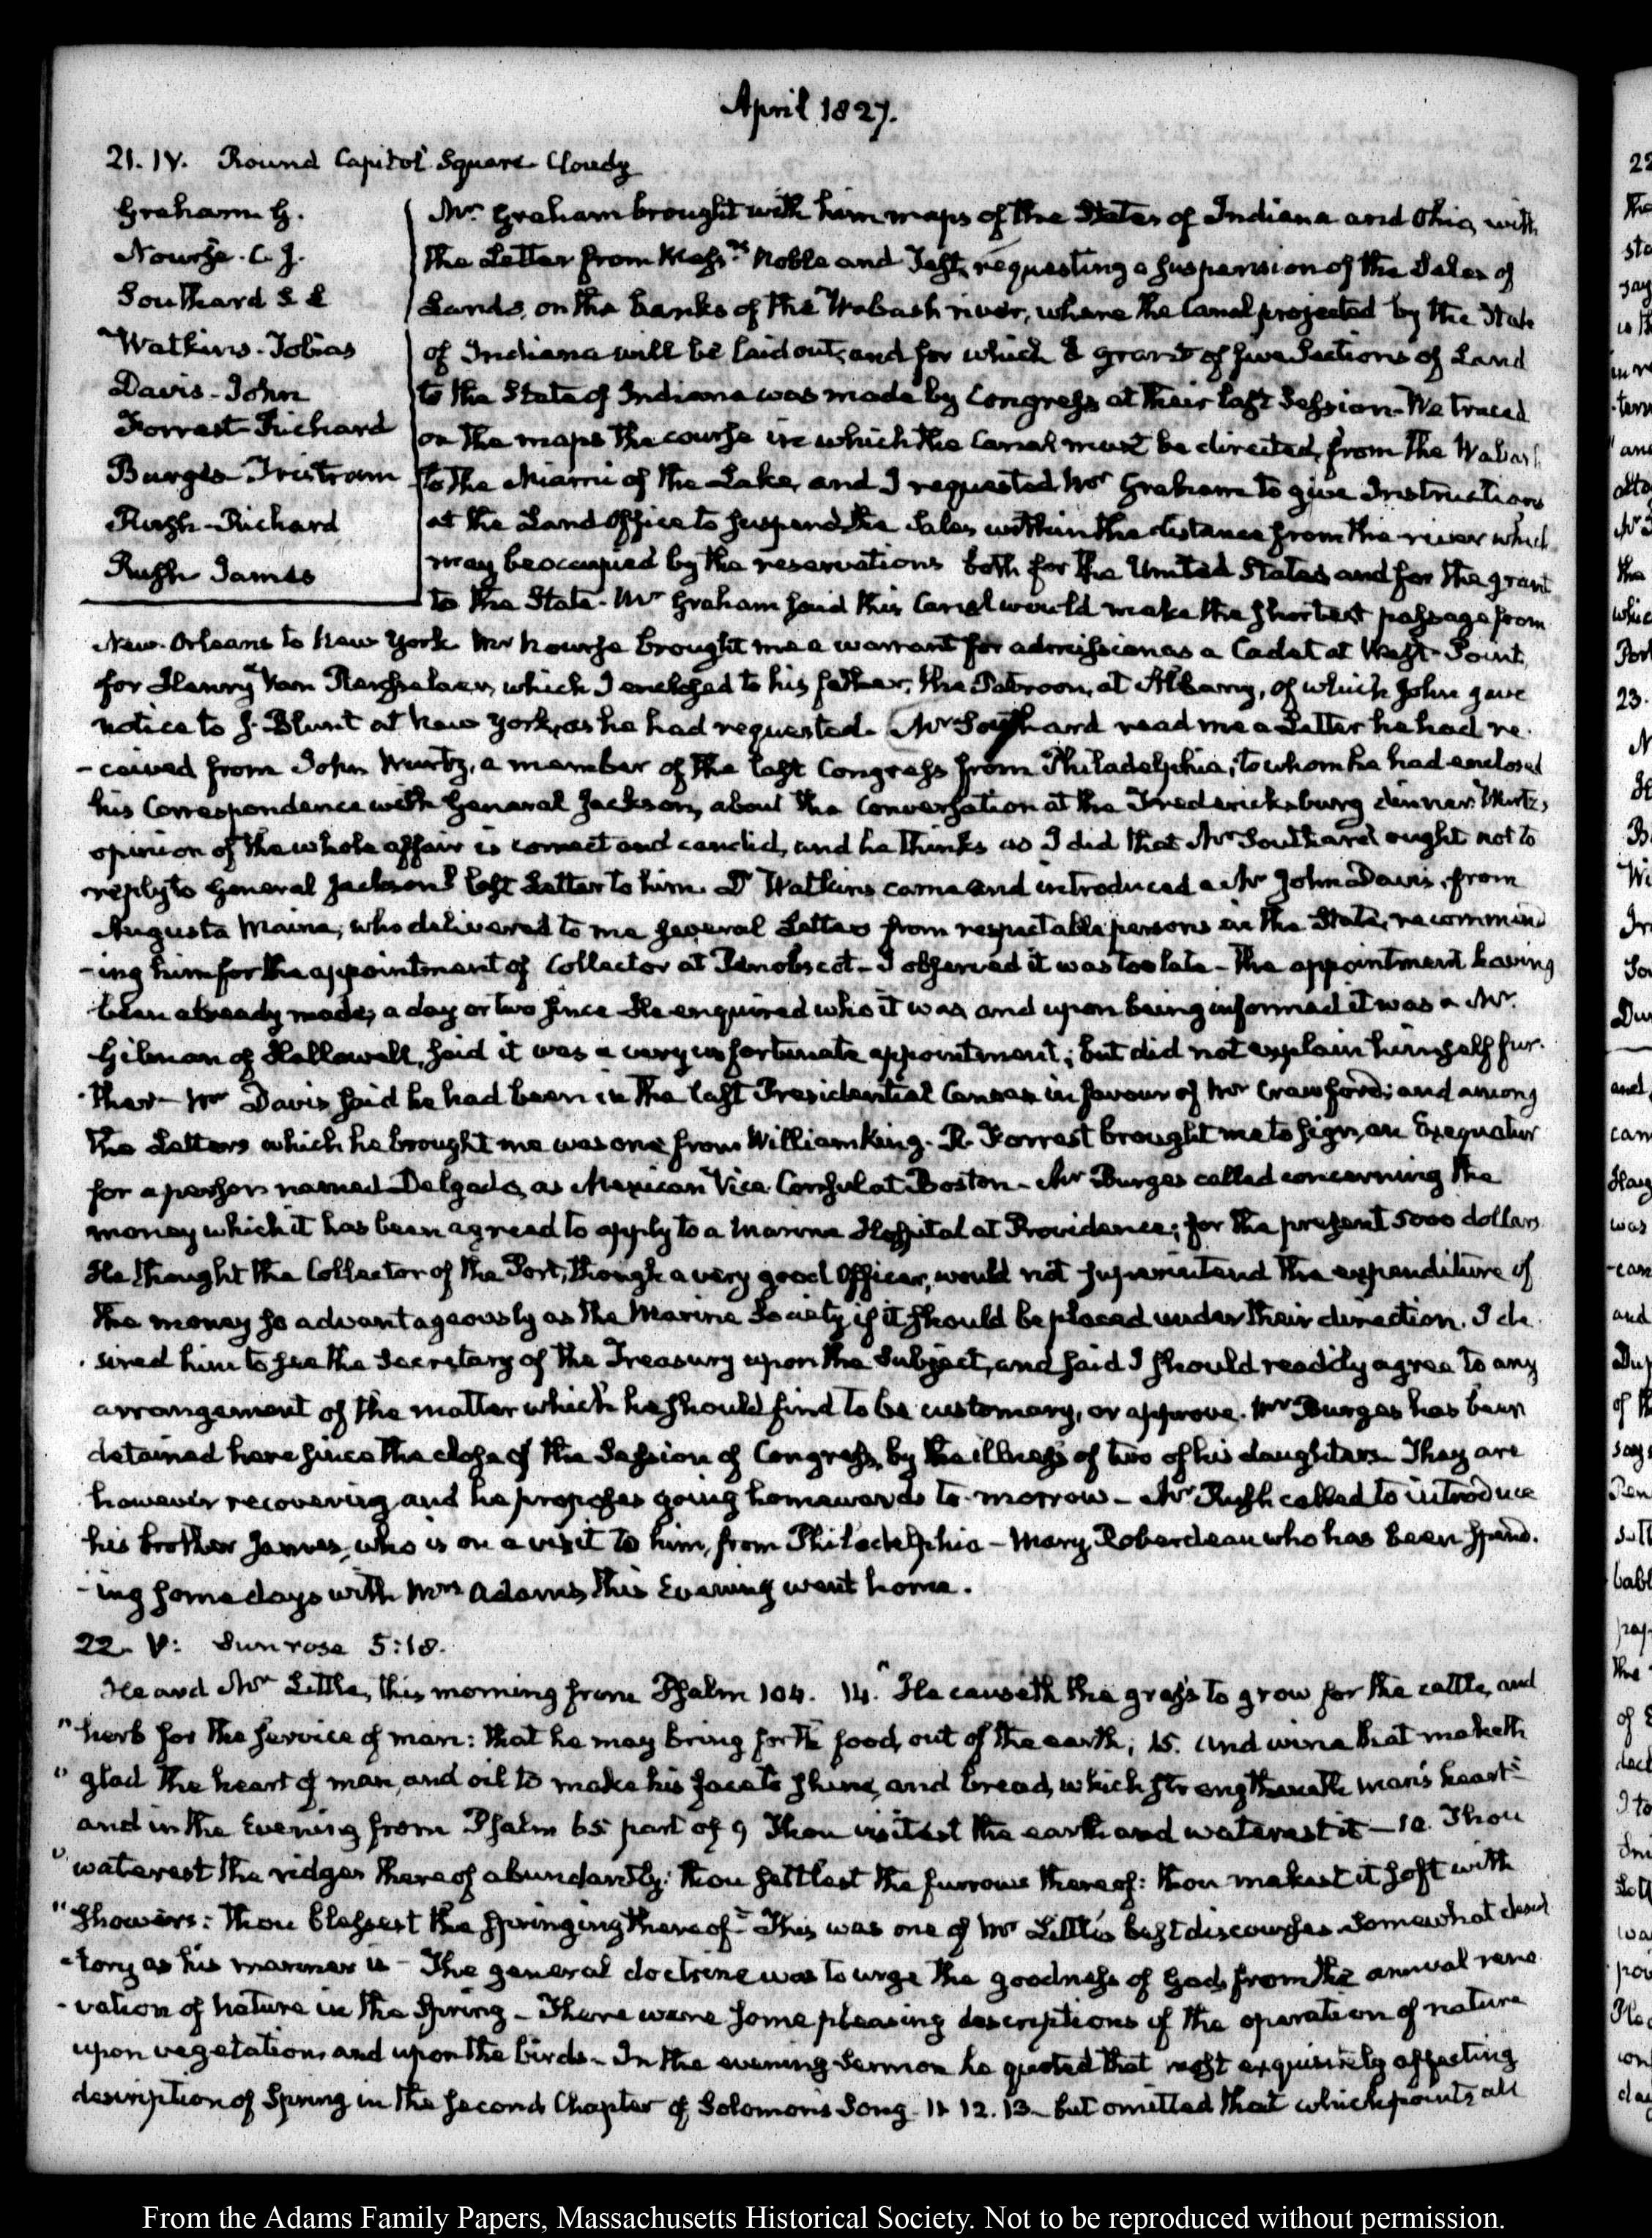 April 1827.
21. IV. Round Capitol Square. Cloudy
Graham G.
Nourse. C. J.
Southard S. L
Watkins. Tobias
Davis. John
Forrest Richard
Burges. Tristram
Rush. Richard
Rush James
Mr. Graham brought with him maps of the States of Indiana and Ohio, with
the Letter from Messrs. Noble and Test, requesting a suspension of the Sales of
Lands, on the banks of the Wabash river, where the Canal projected by the State
of Indiana will be laid out, and for which a grant of five Sections of Land
to the State of Indiana was made by Congress at their last Session. We traced
on the maps the course in which the Canal must be directed, from the Wabash
to the Miami of the Lake, and I requested Mr Graham to give Instructions
at the Land Office to suspend the Sales within the distance from the river which
may be occupied by the reservations both for the United States and for the grant
to the State. Mr Graham said this Canal would make the shortest passage from
New Orleans to New York. Mr Nourse brought me a warrant for admission as a Cadet at West-Point,
for Henry Van Rensselaer, which I enclosed to his father, the Patroon, at Albany, of which John gave
notice to J. Blunt at New York, as he had requested. Mr Southard read me a Letter he had re-
-ceived from John Wurtz, a member of the last Congress from Philadelphia, to whom he had enclosed
his Correspondence with General Jackson, about the Conversation at the Fredericksburg dinner. Wurtz's
opinion of the whole affair is correct and candid, and he thinks as I did that Mr Southard ought not to
reply to General Jackson's last Letter to him. Dr Watkins came and introduced a Mr John Davis, from
Augusta Maine, who delivered to me several Letters from respectable persons in the State, recommend
-ing him for the appointment of Collector at Penobscot- I observed it was too late- The appointment having
been already made, a day or two since. He enquired who it was, and upon being informed it was a Mr.
Gilman of Hallowell, said it was a very unfortunate appointment; but did not explain himself fur-
-ther- Mr Davis said he had been in the last Presidential Canvas in favour of Mr Crawford; and among
the Letters which he brought me was one from William King. R. Forrest brought me to sign, an Exequatur
for a person named Delgado, as Mexican Vice Consul at Boston- Mr Burges called concerning the
money which it has been agreed to apply to a Marine Hospital at Providence; for the present 5000 dollars
He thought the Collector of the Port, though a very good Officer, would not superintend the expenditure of
the money so advantageously as the Marine Society if it should be placed under their direction. I de-
-sired him to see the Secretary of the Treasury upon the subject, and said I should readily agree to any
arrangement of the matter which he should find to be customary, or approve. Mr Burges has been
detained here since the close of the Session of Congress, by the illness of two of his daughters. They are
however recovering, and he proposes going homewards to-morrow- Mr Rush called to introduce
his brother James, who is on a visit to him, from Philadelphia- Mary Roberdeau who has been spend-
-ing some days with Mrs Adams this Evening went home.
22. V: Sun rose 5:18.
Heard Mr Little, this morning from Psalm 104. 14. "He causeth the grass to grow for the cattle, and
"herb for the service of man: that he may bring forth food, out of the earth; 15. and wine that maketh
"glad the heart of man, and oil to make his face to shine, and bread, which strengtheneth man's heart"-
and in the Evening from Psalm 65 part of 9 Thou visitest the earth and waterest it- 10. Thou
"waterest the ridges thereof abundantly: thou settlest the furrows thereof: thou makest it soft with
"showers: thou blessest the springing thereof" This was one of Mr Little's best discourses. Somewhat desul
-tory as his manner is- The general doctrine was to urge the goodness of God, from the annual reno
-vation of nature in the Spring- There were some pleasing descriptions of the operation of nature
upon vegetation, and upon the birds- In the evening Sermon he quoted that most exquisitely affecting
description of Spring in the second Chapter of Solomon's Song. 11. 12. 13- but omitted that which points all
From the Adams Family Papers, Massachusetts Historical Society. Not to be reproduced without permission.